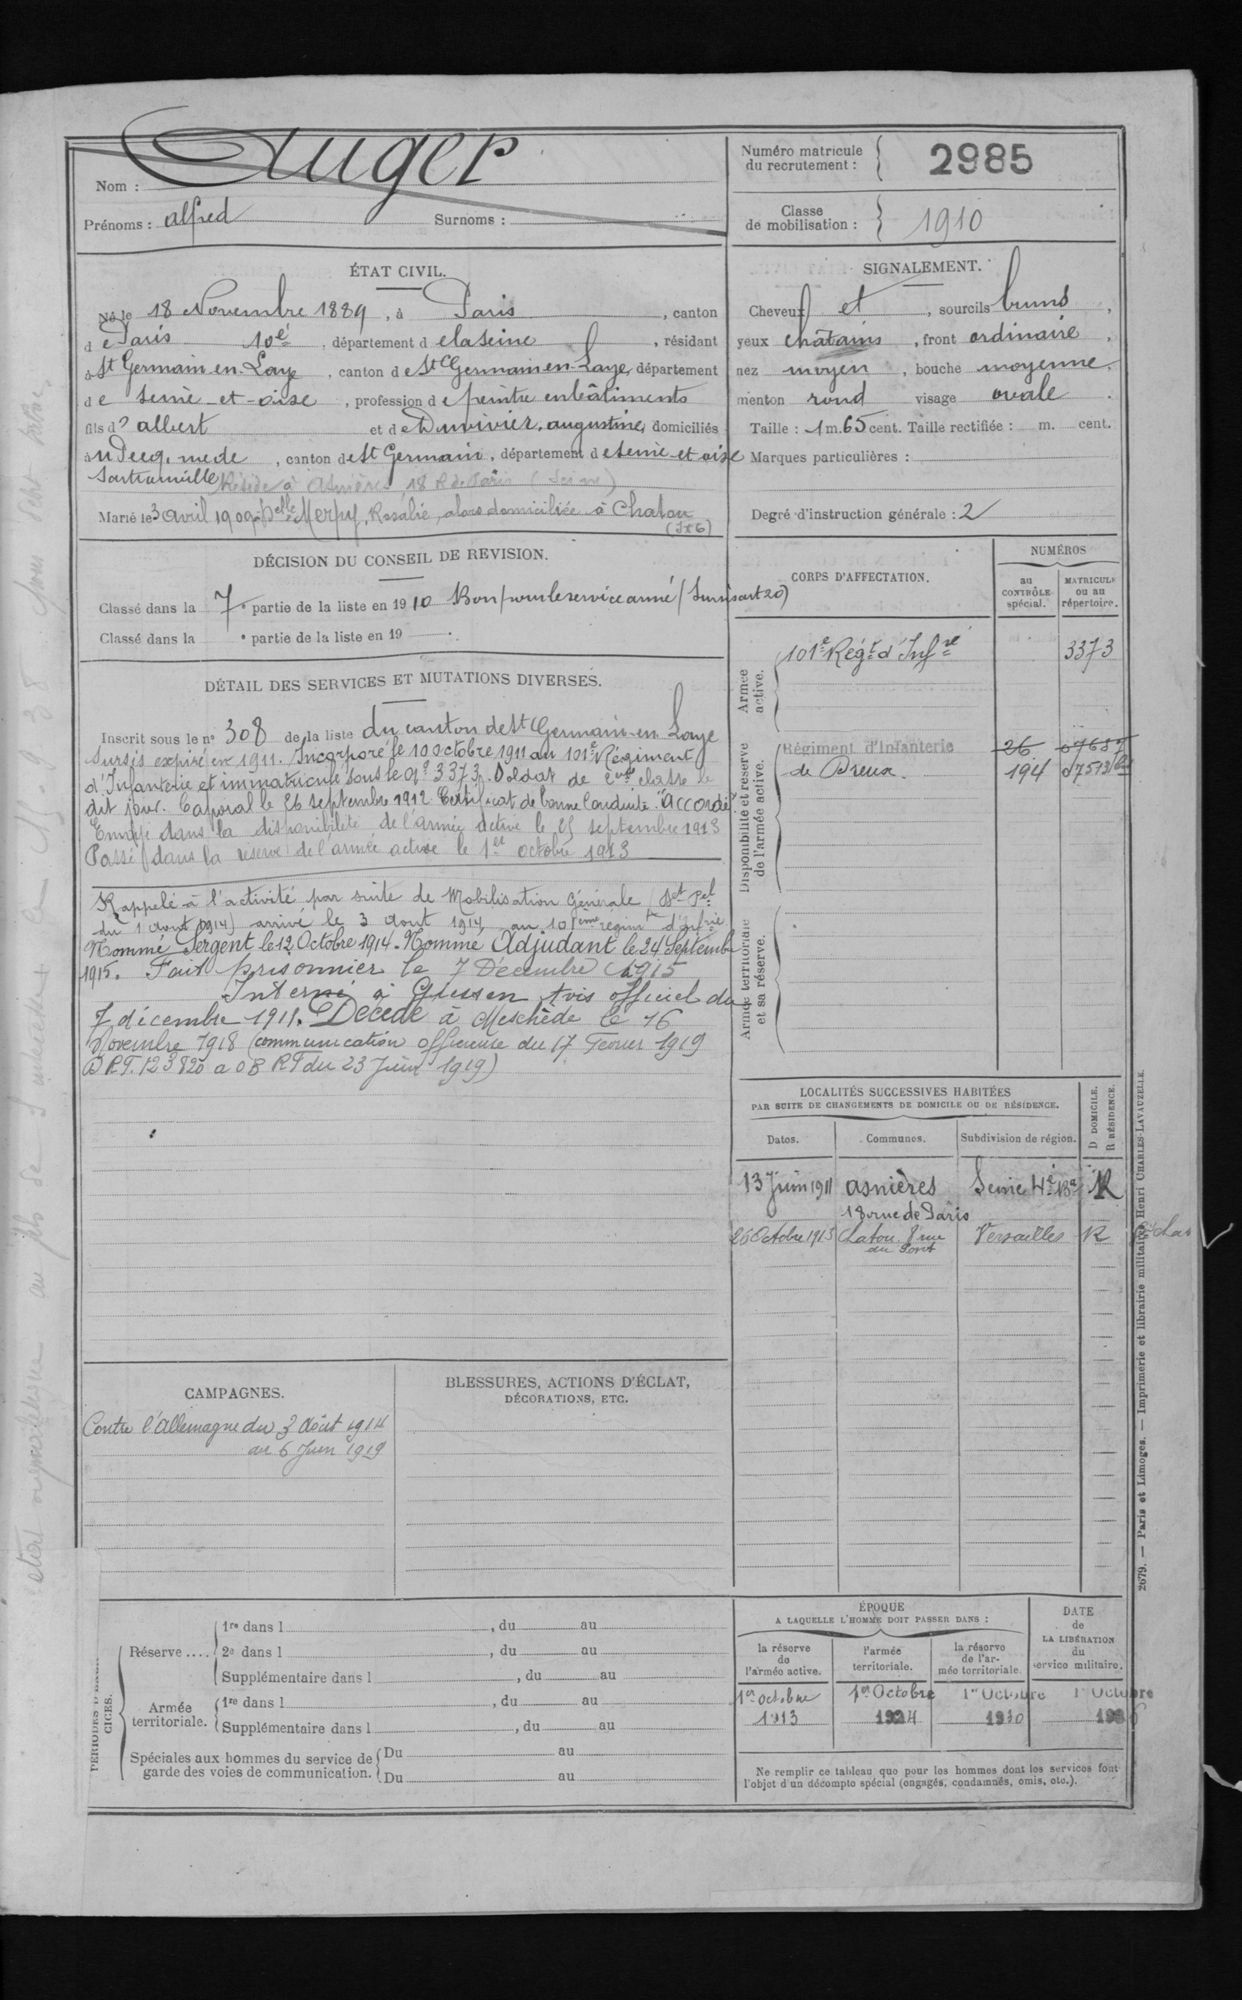 Nom : Auger
Prénoms : alfred Surnoms :
Numéro matricule du recrutement : 2985
Classe de mobilisation : 1910
ÉTAT CIVIL.
Né le 18 Novembre 1889, à Paris, canton
de Paris 10e, département de la seine, résidant
à St Germain en Laye, canton de St Germain en Laye, département
de seine et oise, profession de peintre en bâtiments
fils d' albert et de Duvivier, augustine, domiciliés
à u Decq. mede, canton de St Germain, département de seine et oise
Sartrouville Réside à Asnières, 18 R de Paris (Seine)
Marié le 3 avril 1909 à Delle Merpy, Rosalie, alors domiciliée à Chatou
(S&O)
SIGNALEMENT.
Cheveux et, sourcils bruns,
yeux chatains, front ordinaire,
nez moyen, bouche moyenne,
menton rond visage ovale.
Taille : 1 m. 65 cent. Taille rectifiée : m. cent.
Marques particulières :
Degré d'instruction générale : 2
DÉCISION DU CONSEIL DE REVISION.
Classé dans la 7e partie de la liste en 1910 Bon pour le service armé (Sursis art 20)
Classé dans la e partie de la liste en 19 .
DÉTAIL DES SERVICES ET MUTATIONS DIVERSES.
Inscrit sous le n° 308 de la liste du canton de St Germain en Laye
Sursis expiré en 1911. Incorporé le 10 octobre 1911 au 101e Régiment
d'Infanterie et immatriculé sous le no 3373. Soldat de 2eme classe le
dit jour. Caporal le 26 septembre 1912. Certificat de bonne Conduite "accordé".
Envoyé dans la disponibilité de l'armée active le 25 septembre 1913
Passé dans la réserve de l'armée active le 1er octobre 1913
Rappelé à l'activité par suite de Mobilisation Générale (Dt Pel
du 1 aout 1914) arrivé le 3 aout 1914 au 101ème régimt d'Infrie
Nommé Sergent le 12 Octobre 1914. Nommé Adjudant le 24 Septembre
1915. Fait prisonnier le 7 Décembre 1915
Interné à Giessen Avis officiel du
7 décembre 1911. Décédé à Meschède le 16
Novembre 1918 (communication officieuse du 17 Fevrier 1919
D R.F. 123820 a O B R F du 23 Juin 1919)
CORPS D'AFFECTATION.
NUMÉROS
au CONTRÔLE spécial.
MATRICULE ou au répertoire.
Armée active.
101e Régt d'Infre 3373
Disponibilité et réserve de l'armée active.
Régiment d'Infanterie 26
de Dreux. 194
Armée territoriale et sa réserve.
LOCALITÉS SUCCESSIVES HABITÉES
PAR SUITE DE CHANGEMENTS DE DOMICILE OU DE RÉSIDENCE.
Dates. Communes. Subdivision de région. D DOMICILE. R RÉSIDENCE.
13 Juin 1911 asnières Seine 4e Bau R
18 rue de Paris
26 Octobre 1913 Chatou 8 rue Versailles R
du Pont
CAMPAGNES.
Contre l'Allemagne du 3 Août 1914
au 6 Juin 1919
BLESSURES, ACTIONS D'ÉCLAT,
DÉCORATIONS, ETC.
PÉRIODES D'EXERCICES.
Réserve....
1re dans l , du au
2e dans l , du au
Supplémentaire dans l , du au
Armée territoriale.
1re dans l , du au
Supplémentaire dans l , du au
Spéciales aux hommes du service de garde des voies de communication.
Du au
Du au
ÉPOQUE
A LAQUELLE L'HOMME DOIT PASSER DANS :
la réserve de l'armée active.
l'armée territoriale.
la réserve de l'armée territoriale.
DATE de LA LIBÉRATION du service militaire.
1er octobre 1er Octobre 1er Octobre 1er Octobre
1913 1924 1930 1936
Ne remplir ce tableau que pour les hommes dont les services font
l'objet d'un décompte spécial (engagés, condamnés, omis, etc.).
2679. — Paris et Limoges. — Imprimerie et librairie militaires Henri CHARLES-LAVAUZELLE.